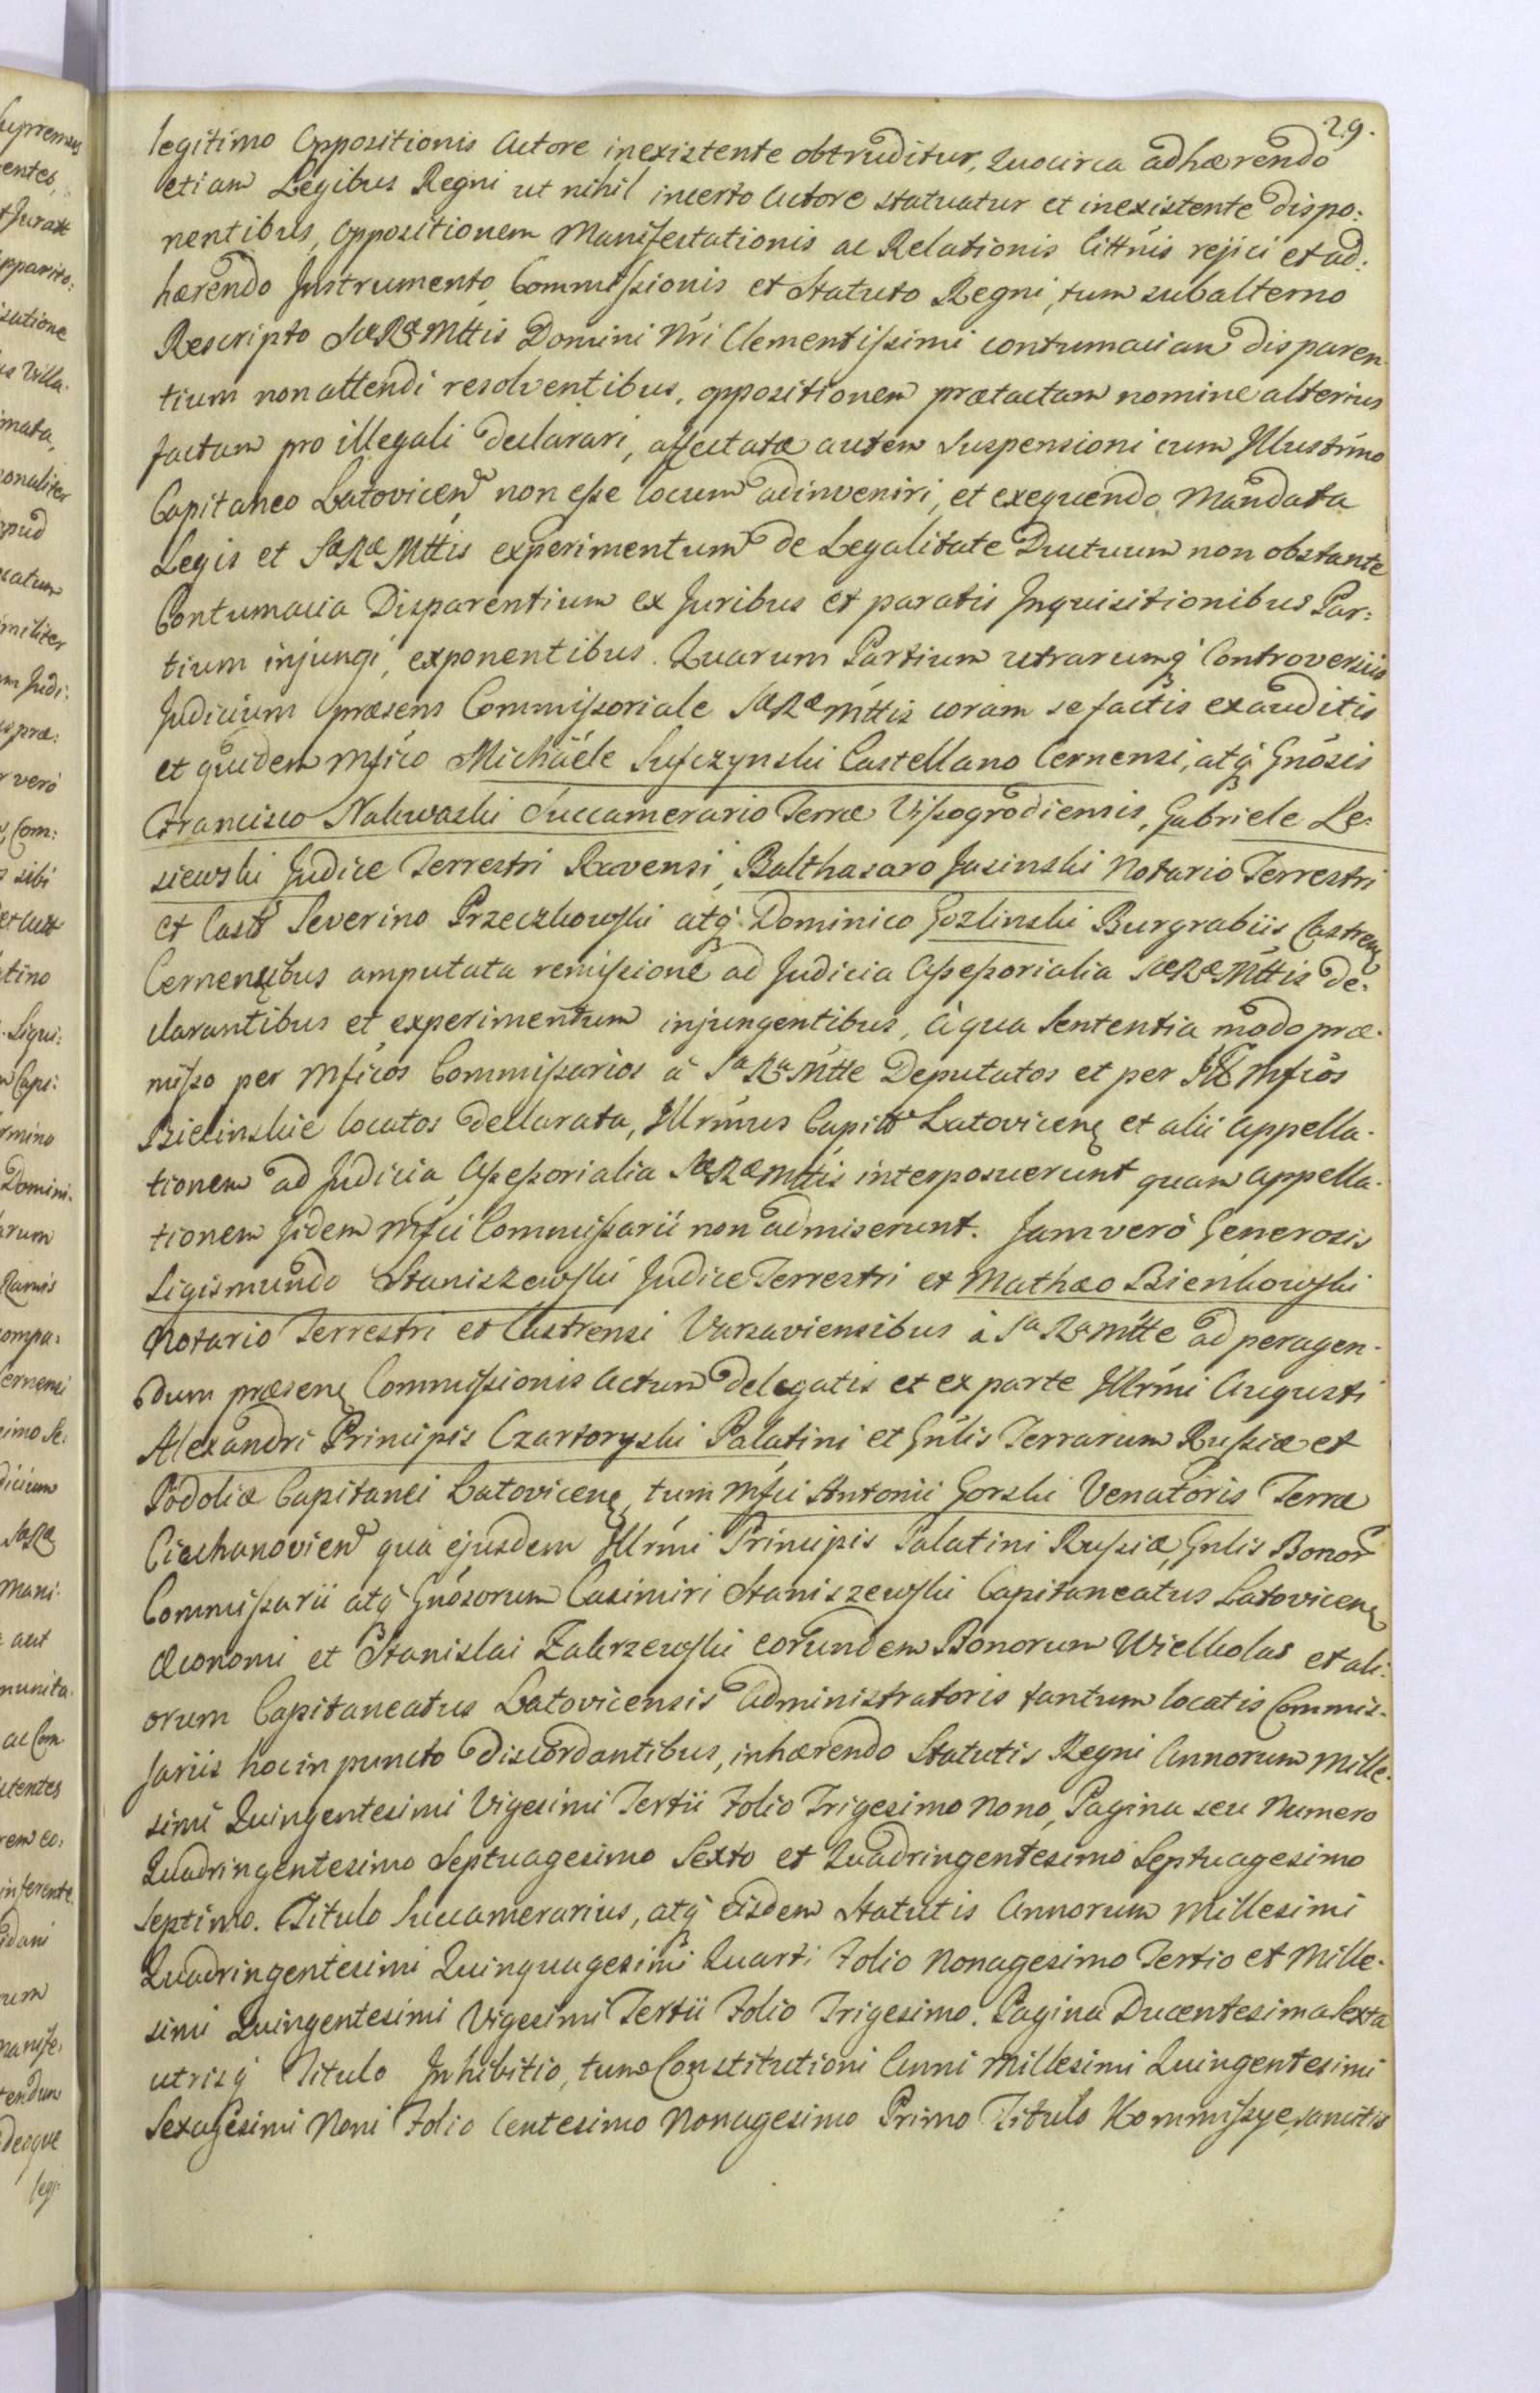 29.
legitimo Oppositionis Actore inexistente obtruditur, Quocirca adhærendo
etiam Legibus Regni ut nihil incerto Actore statuatur et inexistente dispo:
nentibus, Oppositionem Manifestationis ac Relationis Cittñis rejici et ad:
hærendo Instrumento Commissionis et Statuto Regni, tum subalterno
Rescripto SæRæMttis Domini Nri Clementissimi contumaciam disparen
tium non attendi resolventibus, oppositionem prætactam nomine alterius
factam pro illegali declarari, affectatæ autem Suspensioni cum Illustrimo
Capitaneo Latovicen non esse locum adinveniri, et exequendo Mandata
Legis et SæRæMttis experimentum de Legalitate Ductuum non obstante
Contumacia Disparentium ex Juribus et paratis Inquisitionibus Par:
tium injungi, exponentibus. Quarum Partium utrarumq Controversiis
Judicium præsens Commissoriale SæRæMttis coram se factis exauditis
et quidem Mfico Michaële Sufczynski Castellano Cernensi, atq Gnosis
Francisco Nakwaski Succamerario Terræ Vissogrodiensis, Gabriele Le:
siewski Judice Terrestri Ravensi, Balthasaro Jasinski Notario Terrestri
et Castr Severino Przeczkowski atq Dominico Gozlinski Burgrabiis Castren
Cernensibus amputata remissione ad Judicia Assessorialia SæRæMttis de:
clarantibus et experimentum injungentibus, à qua Sententia modo præ:
misso per Mficos Commissarios à SaRaMtte Deputatos et per Mficos
Bielinskie locatos dellarata, Illrmus Capits Latovicen et alii appella:
tionem ad Judicia Assessorialia SæRæMttis interposuerunt quam appella:
tionem Iidem Mfici Commissarii non admiserunt. Jam verò Generosis
Sigismundo Staniszewski Judice Terrestri et Mathæo Bienkowski
Notario Terrestri et Castrensi Varsaviensibus à SaRaMtte ad peragen:
dum præsens Commissionis Actum delegatis et ex parte Illrmi Augusti
Alexandri Principis Czartoryski Palatini et Gnlis Terrarum Russiæ et
Podoliæ Capitanei Latovicen, tum Mfici Antonii Gorski Venatoris Terræ
Ciechanovien quà ejusdem Illrmi Principis Palatini Russiæ, Gnlis Bonor
Commissarii atq Gnosorum Casimiri Staniszewski Capitaneatus Latovicen
Œconomi et Stanislai Zakrzewski eorundem Bonorum Wielkolas et ali:
orum Capitaneatus Latovicensis Administratoris tantum locatis Commis:
sariis hoc in puncto discordantibus, inhærendo Statutis Regni Annorum Mille:
simi Quingentesimi Vigesimi Tertii Folio Trigesimo Nono, Pagina seu Numero
Quadringentesimo Septuagesimo Sexto et Quadringentesimo Septuagesimo
Septimo. Titulo Succamerarius, atq eisdem Statutis Annorum Millesimi
Quadringentesimi Quinquagesimi Quarti Folio Nonagesimo Tertio et Mille:
simi Quingentesimi Vigesimi Tertii Folio Trigesimo. Pagina Ducentesima Sexta
utrisq Titulo Inhibitio, tum Constitutioni Anni Millesimi Quingentesimi
Sexagesimi Noni Folio Centesimo Nonagesimo Primo Titulo Kommissye, sancitis